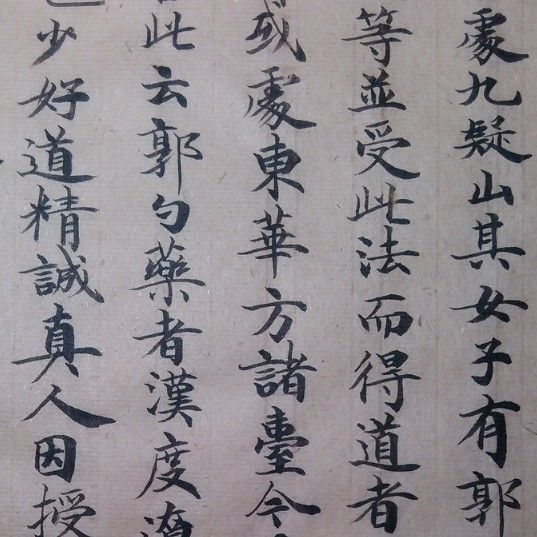 處九疑山其女子有郭
等並受此法而得道者
或處東華方諸臺今
此云郭勺藥者漢度遼
也少好道精誠真人因授